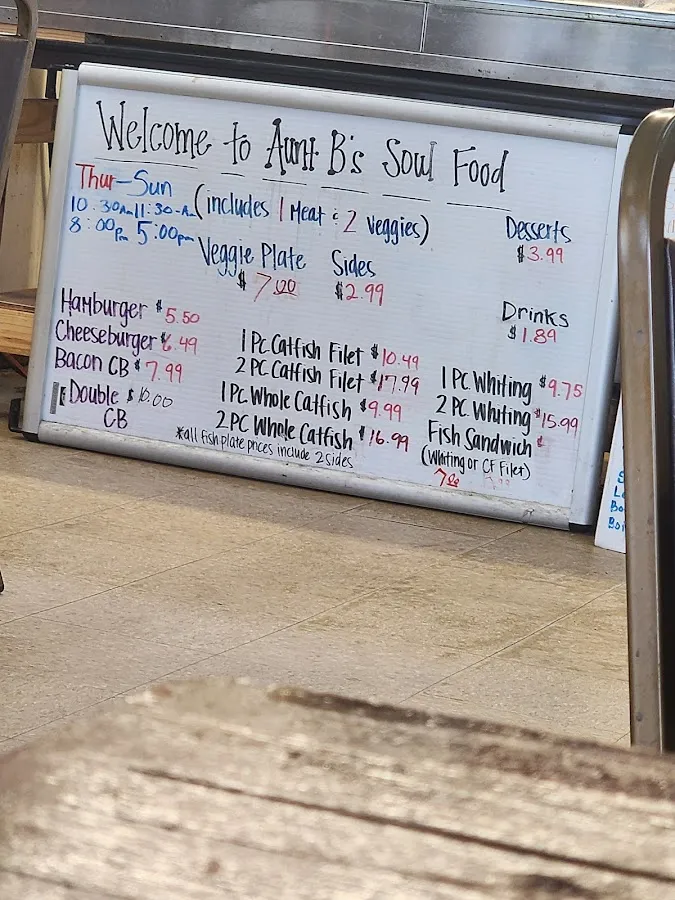 Welcome to Aunt B's Soul Food
Thur-Sun
10:30am 11:30-Am
8:00pm 5:00pm
(includes 1 Meat & 2 Veggies)
Veggie Plate
$7.00
Sides
$2.99
Desserts
$3.99
Drinks
$1.89
Hamburger $5.50
Cheeseburger $6.49
Bacon CB $7.99
Double $10.00
CB
1 Pc Catfish Filet $10.49
2 PC Catfish Filet $17.99
1 PC Whole Catfish $9.99
2 PC Whole Catfish $16.99
*all fish plate prices include 2 sides
1 PC Whiting $9.75
2 PC Whiting $15.99
Fish Sandwich
(Whiting or CF Filet)
7.00